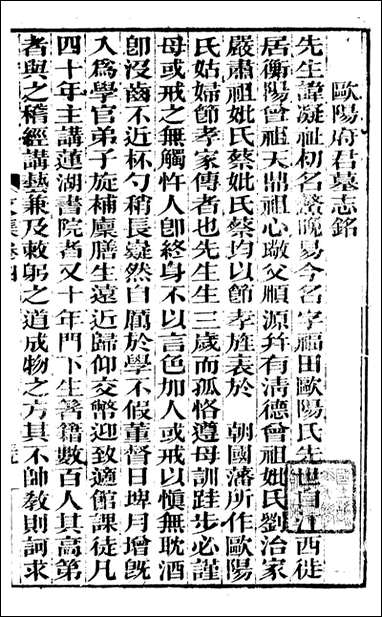 歐陽府君墓志銘
先生諱凝祉初名鰲晚易今名字福田歐陽氏先世自江西徙
居衡陽曾祖天鼎祖心敬父順源幷有淸德曾祖妣氏劉治家
嚴肅祖妣氏蔡妣氏蔡均以節孝旌表於　朝國藩所作歐陽
氏姑婦節孝家傳者也先生生三歲而孤恪遵母訓跬步必謹
母或戒之無觸忤人卽終身不以言色加人或戒以愼無耽酒
卽沒齒不近杯勺稍長嶷然自厲於學不假董督日埤月增旣
入爲學官弟子旋補廩膳生遠近歸仰交幣迎致適館課徒凡
四十年主講蓮湖書院者又十年門下生著籍數百人其高第
者與之稽經講藝兼及敕躬之道成物之方其不帥敎則訶求
文集卷四